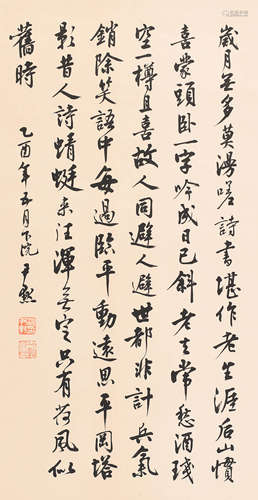 歲月无多莫漫嗟詩書堪作老生涯后山慣
喜蒙頭卧一字吟成日已斜老去常愁酒琖
空一樽且喜故人同避人避世都非計兵氣
銷除笑語中每過臨平動遠思平岡塔
影昔人詩蜻蜓來往渾无定只有荷風似
舊時
乙酉年五月下浣尹默